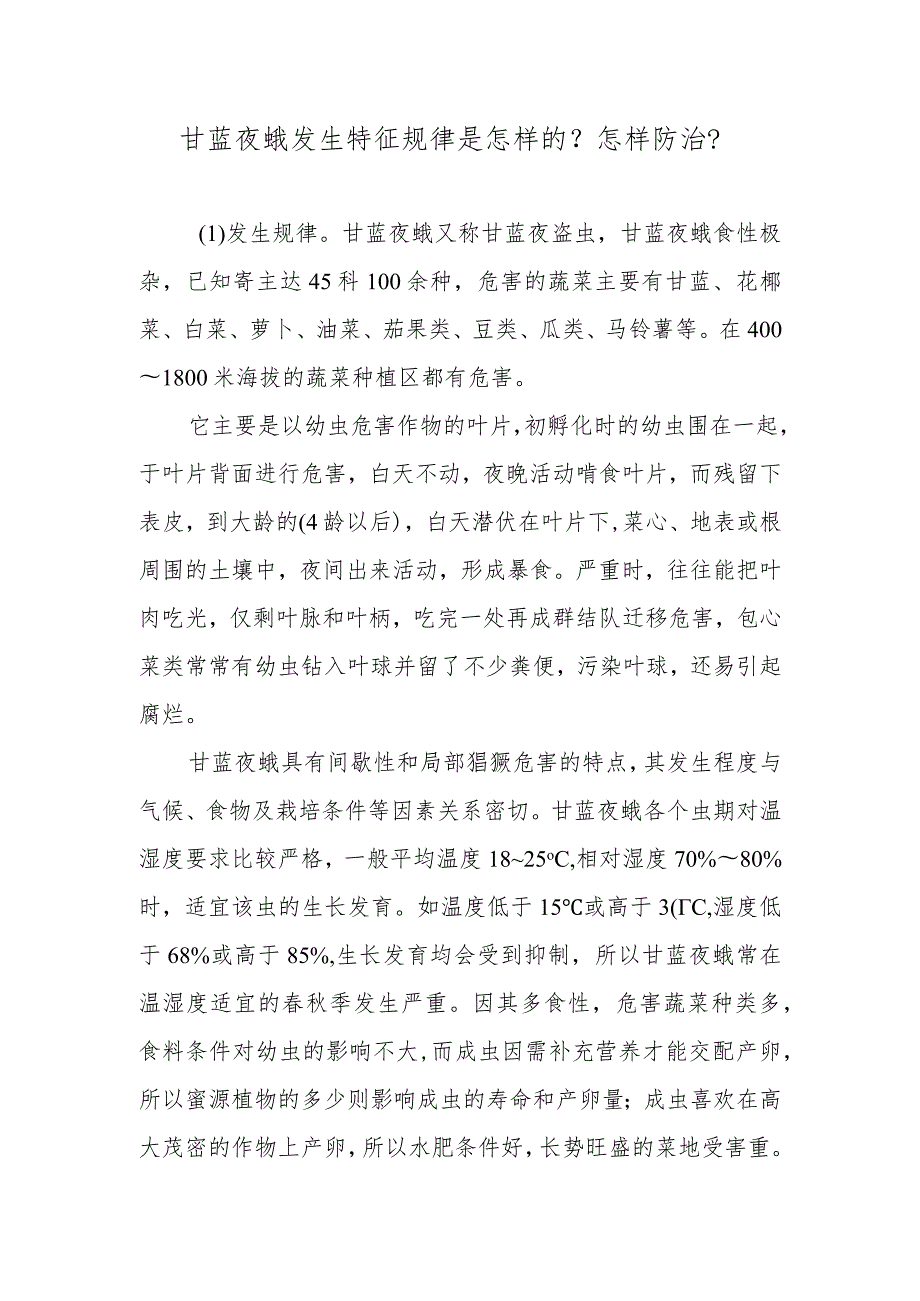 甘蓝夜蛾发生特征规律是怎样的？怎样防治?
(1)发生规律。甘蓝夜蛾又称甘蓝夜盗虫，甘蓝夜蛾食性极
杂，已知寄主达 45 科 100 余种，危害的蔬菜主要有甘蓝、花椰
菜、白菜、萝卜、油菜、茄果类、豆类、瓜类、马铃薯等。在 400
～1800 米海拔的蔬菜种植区都有危害。
它主要是以幼虫危害作物的叶片,初孵化时的幼虫围在一起，
于叶片背面进行危害，白天不动，夜晚活动啃食叶片，而残留下
表皮，到大龄的(4 龄以后），白天潜伏在叶片下,菜心、地表或根
周围的土壤中，夜间出来活动，形成暴食。严重时，往往能把叶
肉吃光，仅剩叶脉和叶柄，吃完一处再成群结队迁移危害，包心
菜类常常有幼虫钻入叶球并留了不少粪便，污染叶球，还易引起
腐烂。
甘蓝夜蛾具有间歇性和局部猖獗危害的特点，其发生程度与
气候、食物及栽培条件等因素关系密切。甘蓝夜蛾各个虫期对温
湿度要求比较严格，一般平均温度 18~25ºC,相对湿度 70%～80%
时，适宜该虫的生长发育。如温度低于 15℃或高于 3(ΓC,湿度低
于 68%或高于 85%,生长发育均会受到抑制，所以甘蓝夜蛾常在
温湿度适宜的春秋季发生严重。因其多食性，危害蔬菜种类多，
食料条件对幼虫的影响不大,而成虫因需补充营养才能交配产卵，
所以蜜源植物的多少则影响成虫的寿命和产卵量；成虫喜欢在高
大茂密的作物上产卵，所以水肥条件好，长势旺盛的菜地受害重。